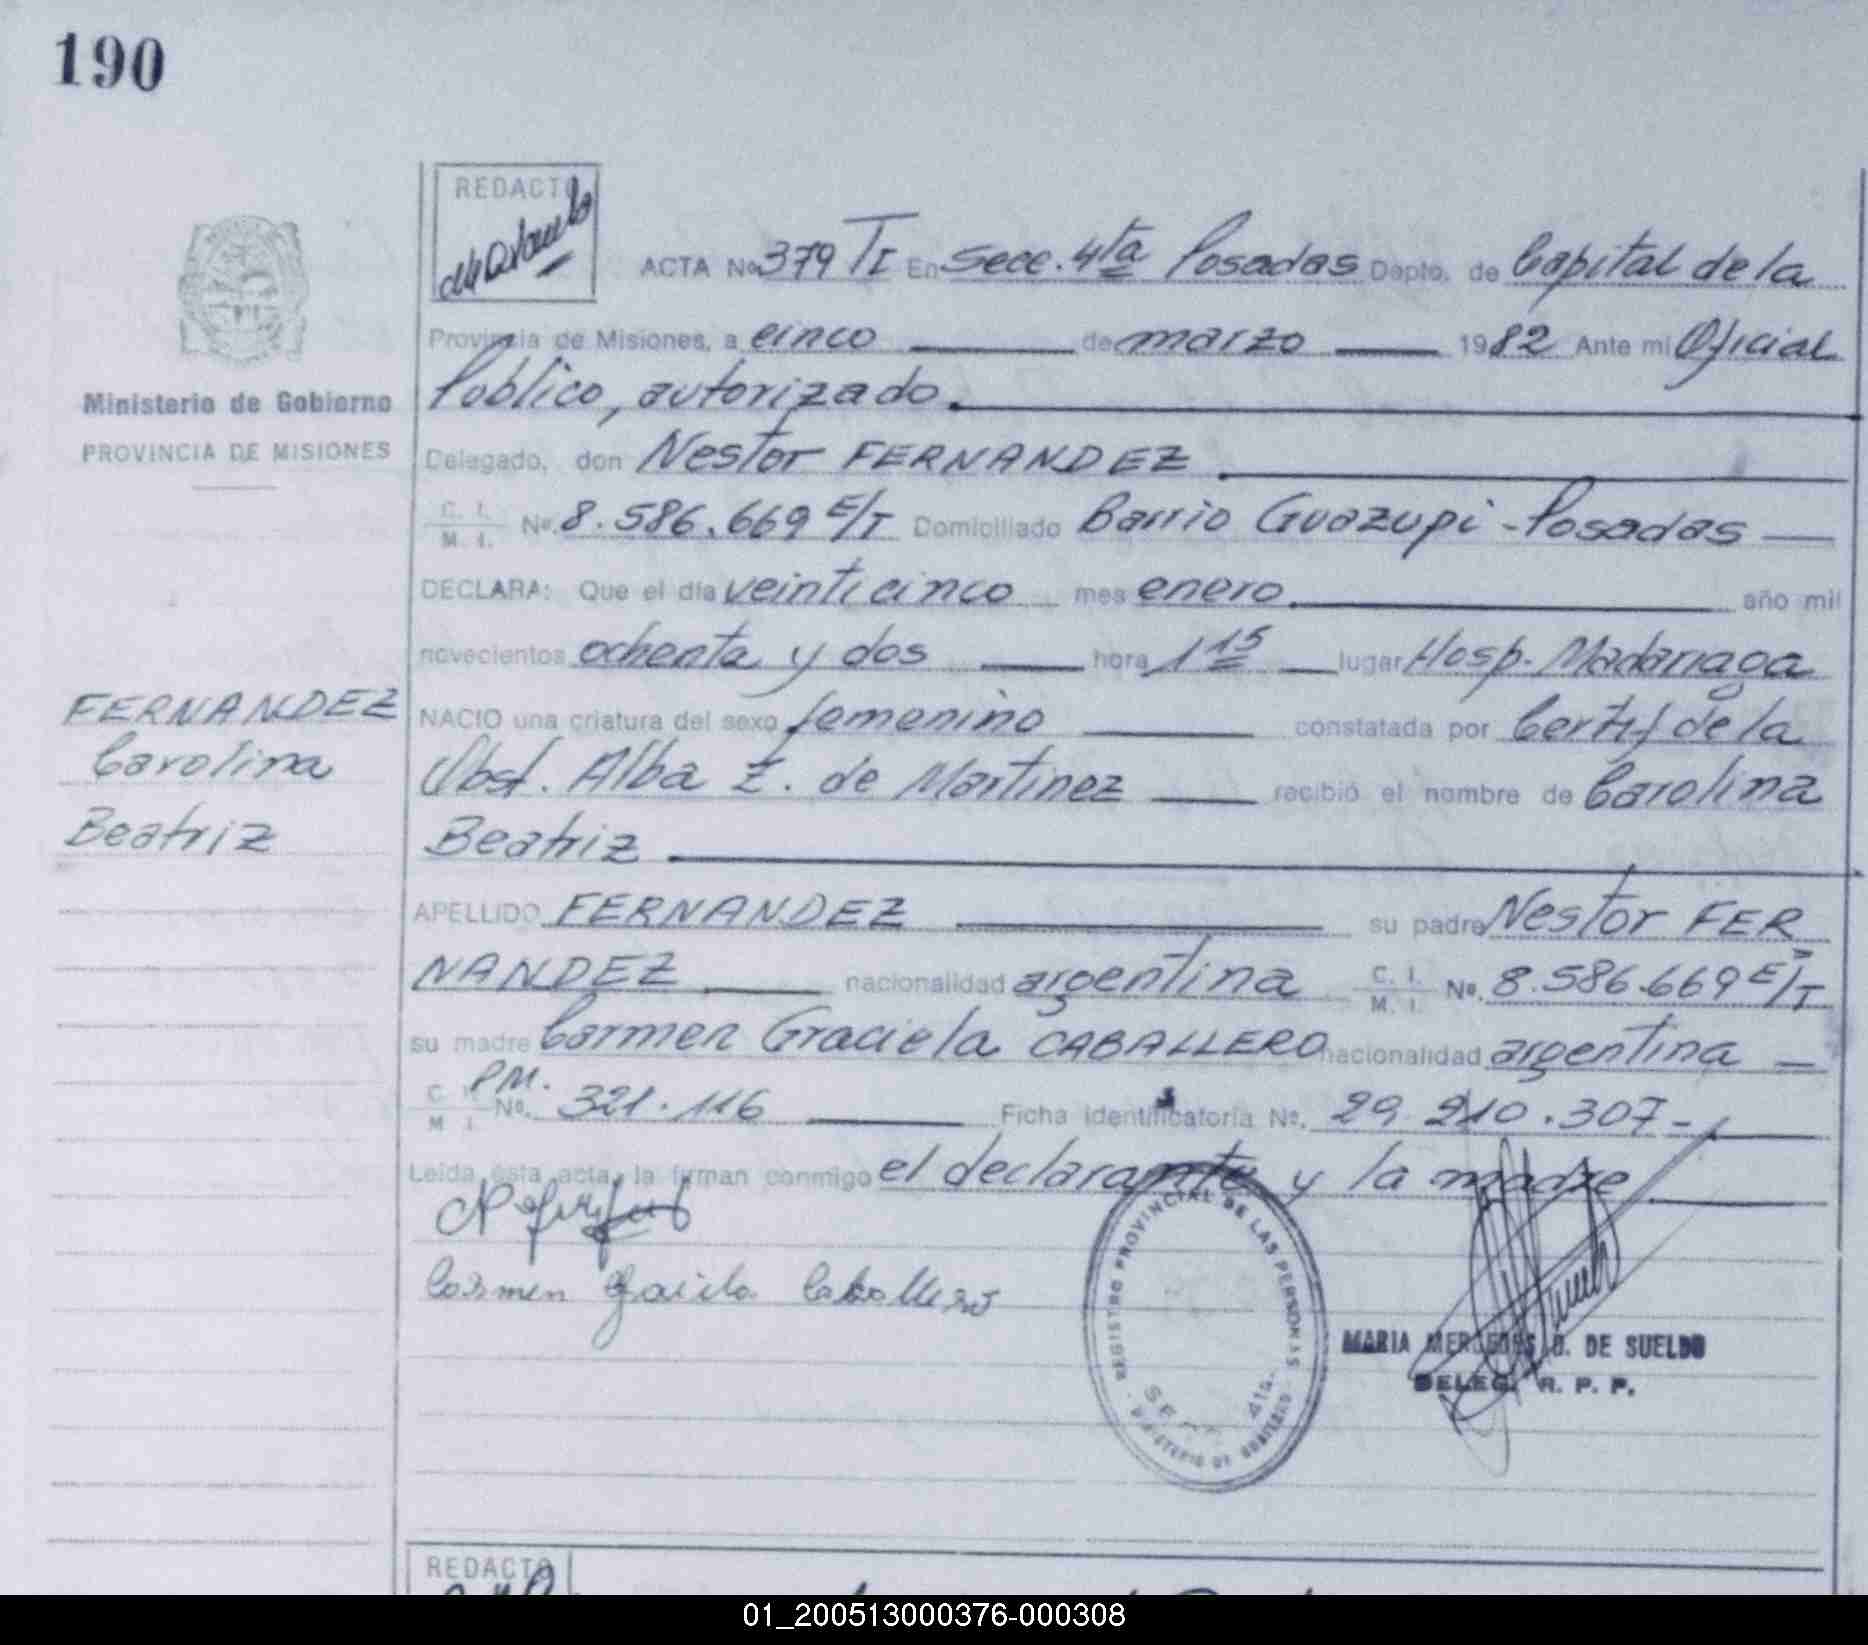 190
REDACTO
ACTA Nº 379 TI En Secc. 4ta Posadas Depto. de Capital de la
Provincia de Misiones, a cinco de marzo 1982 Ante mi Oficial
Público, autorizado.
Ministerio de Gobierno
PROVINCIA DE MISIONES
Delegado, don Nestor FERNANDEZ
C. I. M. I. Nº. 8.586.669 E/T Domiciliado Barrio Guazupi - Posadas
DECLARA: Que el día veinticinco mes enero. año mil
novecientos ochenta y dos hora 1 15 lugar Hosp. Madariaga
FERNANDEZ
Carolina
Beatriz
NACIO una criatura del sexo femenino constatada por Certif de la
Obst. Alba Z. de Martinez recibió el nombre de Carolina
Beatriz
APELLIDO FERNANDEZ su padre Nestor FER
NANDEZ nacionalidad argentina C. I. M. I. Nº. 8.586.669 E/T
su madre Carmen Graciela CABALLERO nacionalidad argentina
C. I. M. I. PM. Nº. 321.116 Ficha identificatoria Nº. 29.210.307-
Leída ésta acta, la firman conmigo el declarante y la madre
Carmen Graciela Caballero
REGISTRO PROVINCIAL DE LAS PERSONAS
SECC. 4ta.
MINISTERIO DE GOBIERNO
MARIA MERCEDES D. DE SUELDO
DELEG. R. P. P.
REDACTO
01_200513000376-000308